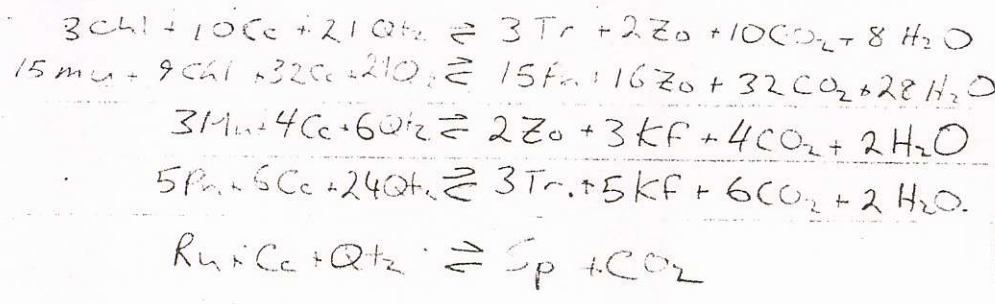 3Chl + 10Cc + 21Qtz ⇌ 3Tr + 2Zo + 10CO₂ + 8H₂O
15mu + 9Chl + 32Cc + 21Q ⇌ 15Pn + 16Zo + 32CO₂ + 28H₂O
3Mu + 4Cc + 6Qtz ⇌ 2Zo + 3Kf + 4CO₂ + 2H₂O
5Pn + 6Cc + 24Qtz ⇌ 3Tr. + 5Kf + 6CO₂ + 2H₂O.
Ru + Cc + Qtz ⇌ Sp + CO₂